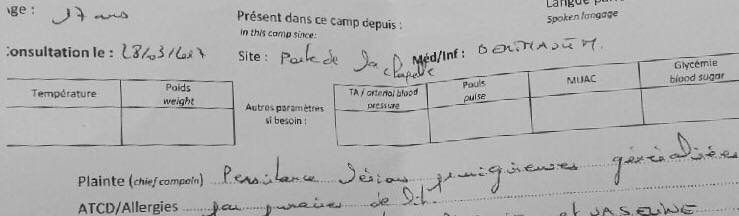 Age : 17 ans
Langue
Spoken langage
Présent dans ce camp depuis :
in this camp since:
Consultation le : 28/03/2017
Site : Porte de la chapelle Méd/Inf :
Température
Poids
weight
Autres paramètres
si besoin :
TA / arterial blood
pressure
Pouls
pulse
MUAC
Glycémie
blood sugar
Plainte (chief complain) Persistance lésions prurigineuses généralisées
ATCD/Allergies pas punaises de lit.
et VASELINE